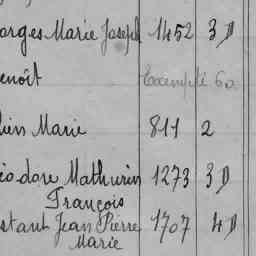 orges Marie Joseph 1452 3 D
enoît Exempté 6o
lien Marie 811 2
éodore Mathurin 1273 3 D
François
stant Jean Pierre 1707 4 D
Marie